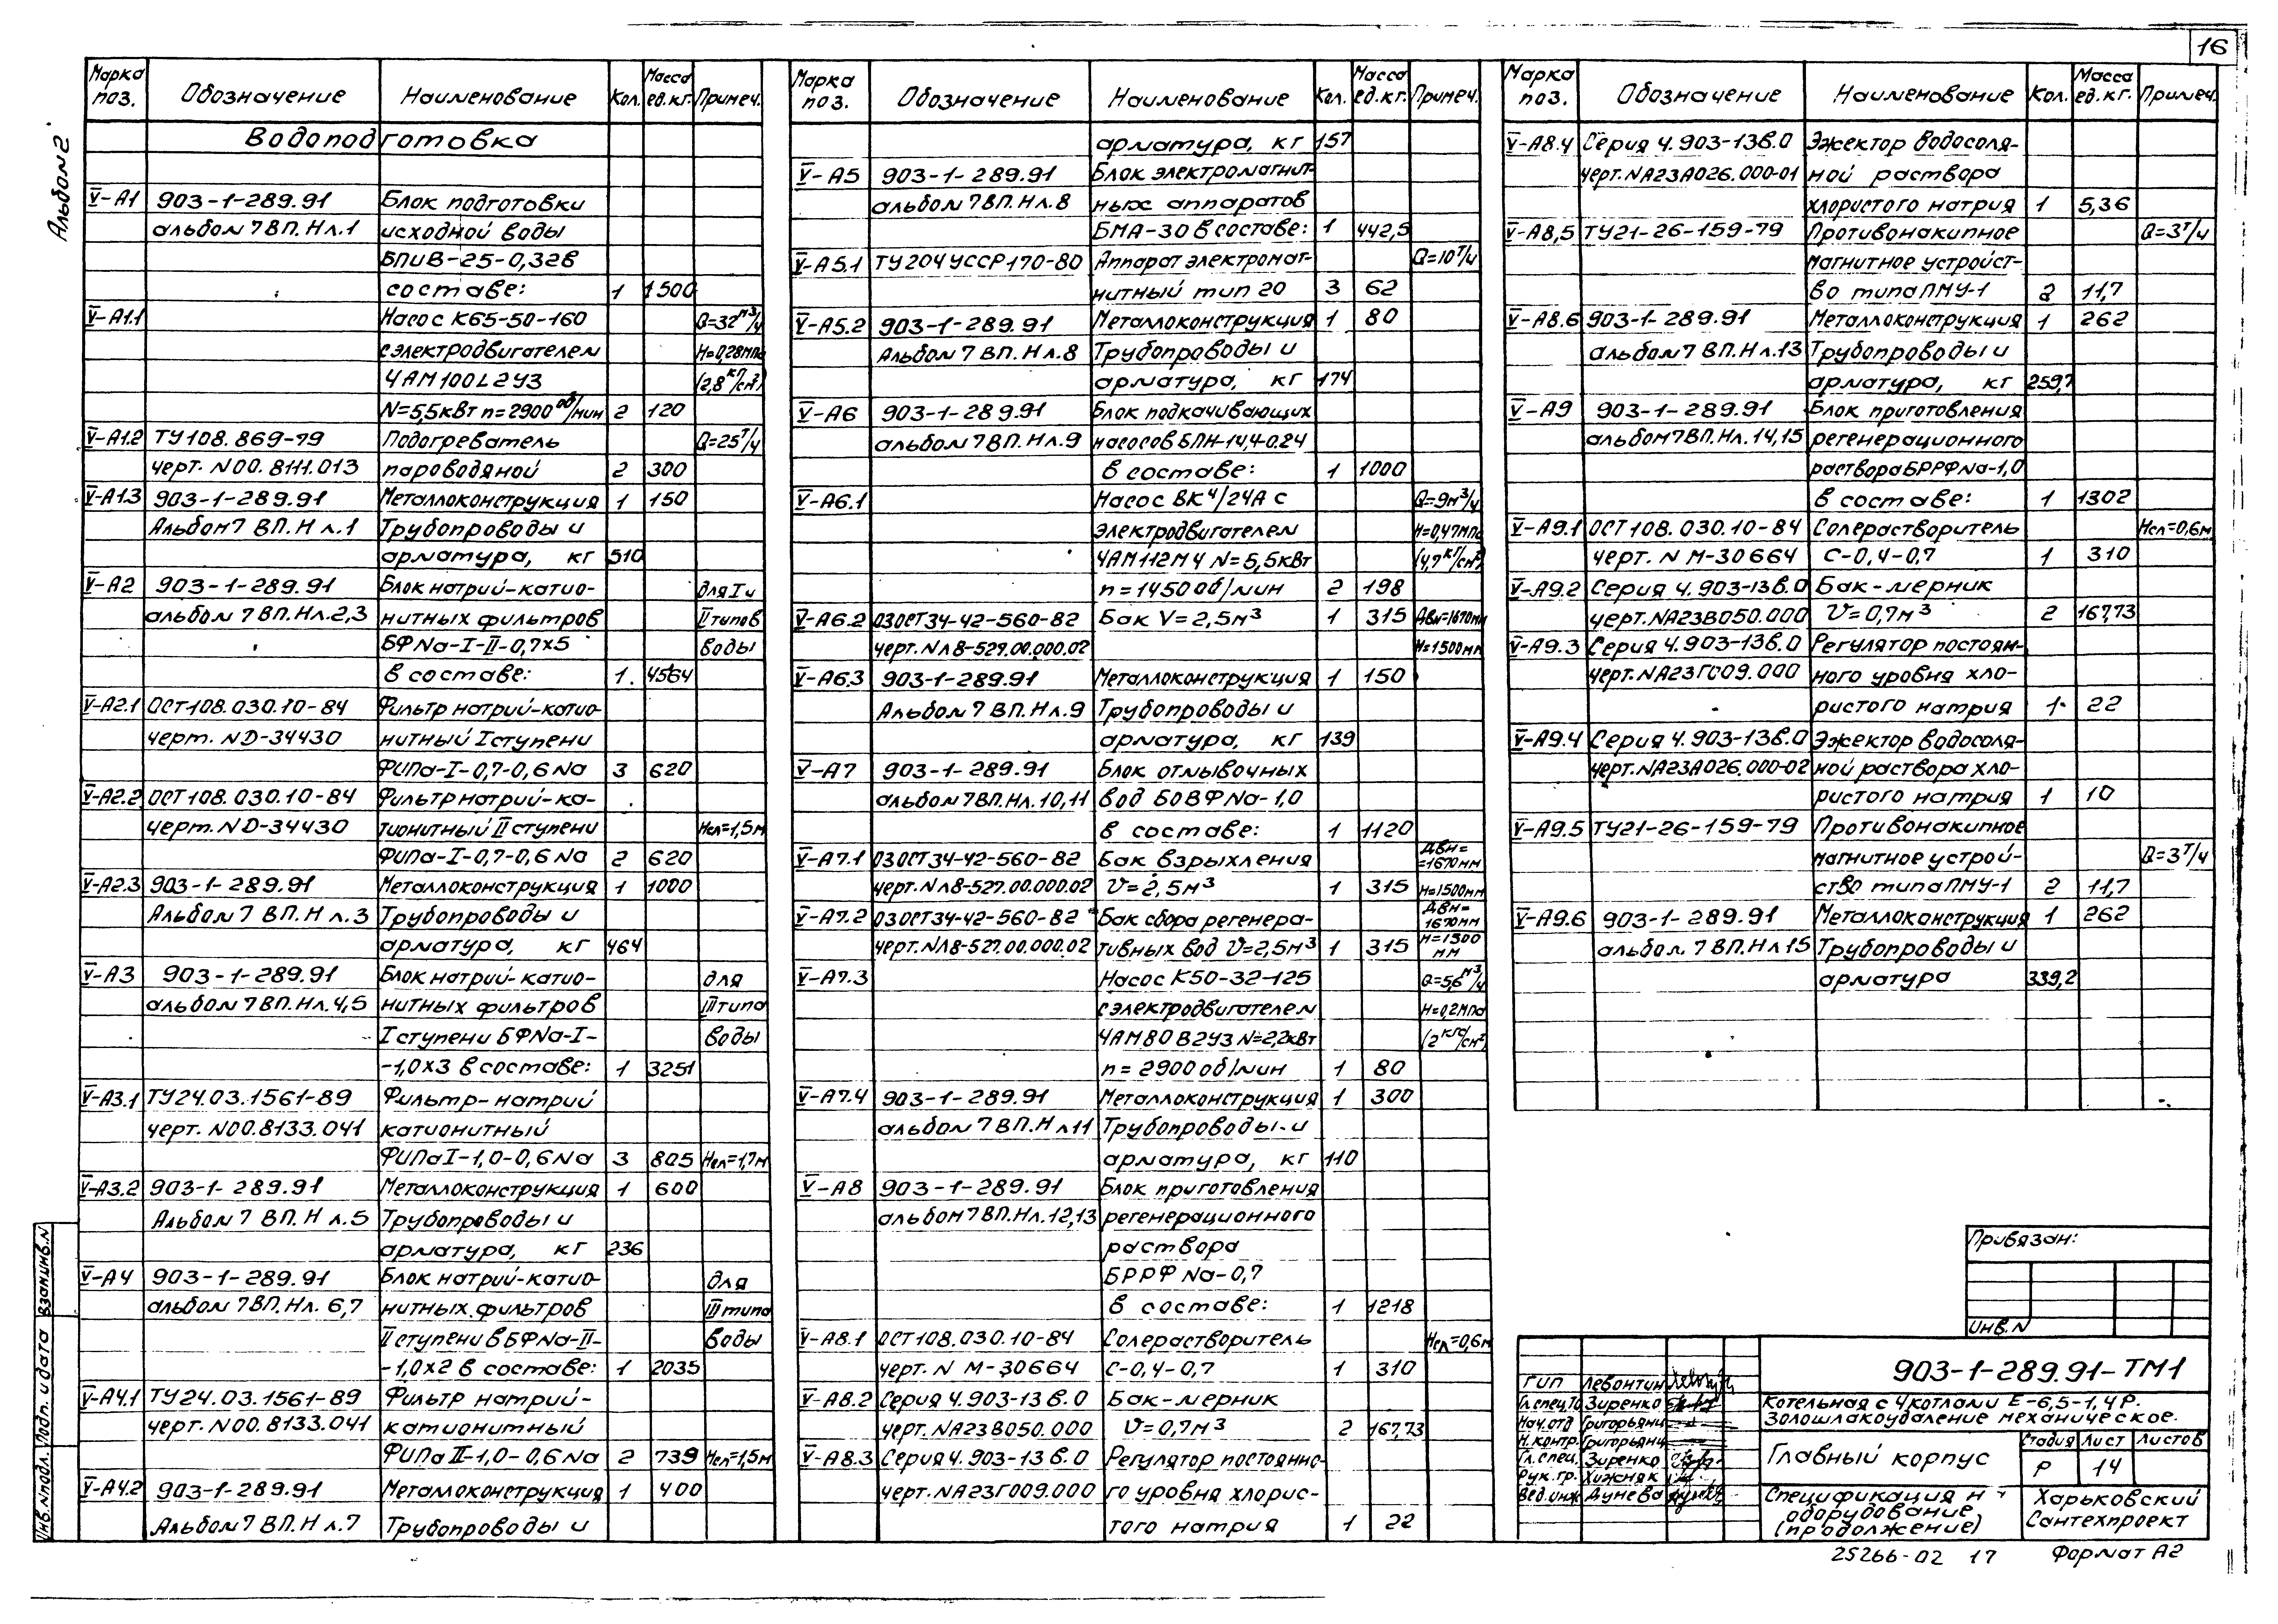 16
Альбом 2
Марка поз. Обозначение Наименование Кол. Масса ед.кг. Примеч.
Водоподготовка
V-А1 903-1-289.91 Блок подготовки
альбом 7 ВП.Н л.1 исходной воды
БПиВ-25-0,32 в
составе: 1 1500
V-А1.1 Насос К65-50-160 Q=32 м3/ч
с электродвигателем Н=0,28МПа
4АМ100L2У3 (2,8 кг/см²)
N=5,5кВт n=2900 об/мин 2 120
V-А1.2 ТУ108.869-79 Подогреватель Q=25 т/ч
черт. N00.8111.013 пароводяной 2 300
V-А1.3 903-1-289.91 Металлоконструкция 1 150
Альбом 7 ВП.Н л.1 Трубопроводы и
арматура, кг 510
V-А2 903-1-289.91 Блок натрий-катио- для I и
альбом 7 ВП.Н л.2,3 нитных фильтров II типов
БФNa-I-II-0,7х5 воды
в составе: 1 4564
V-А2.1 ОСТ108.030.10-84 Фильтр натрий-катио-
черт. ND-34430 нитный I ступени
ФИПа-I-0,7-0,6 Na 3 620
V-А2.2 ОСТ108.030.10-84 Фильтр натрий-ка-
черт. ND-34430 тионитный II ступени Нсл=1,5м
ФИПа-I-0,7-0,6 Na 2 620
V-А2.3 903-1-289.91 Металлоконструкция 1 1000
Альбом 7 ВП.Н л.3 Трубопроводы и
арматура, кг 464
V-А3 903-1-289.91 Блок натрий-катио- для
альбом 7 ВП.Н л.4,5 нитных фильтров III типа
I ступени БФNa-I- воды
-1,0х3 в составе: 1 3251
V-А3.1 ТУ24.03.1561-89 Фильтр-натрий
черт. N00.8133.041 катионитный
ФИПаI-1,0-0,6Na 3 805 Нсл=1,7м
V-А3.2 903-1-289.91 Металлоконструкция 1 600
Альбом 7 ВП.Н л.5 Трубопроводы и
арматура, кг 236
V-А4 903-1-289.91 Блок натрий-катио- для
альбом 7 ВП.Н л. 6,7 нитных фильтров III типа
II ступени в БФNa-II- воды
-1,0х2 в составе: 1 2035
V-А4.1 ТУ24.03.1561-89 Фильтр натрий-
черт. N00.8133.041 катионитный
ФИПа II-1,0-0,6Na 2 739 Нсл=1,5м
V-А4.2 903-1-289.91 Металлоконструкция 1 400
Альбом 7 ВП.Н л.7 Трубопроводы и
Марка поз. Обозначение Наименование Кол. Масса ед.кг. Примеч.
арматура, кг 157
V-А5 903-1-289.91 Блок электромагнит-
альбом 7 ВП.Н л.8 ных аппаратов
БМА-30 в составе: 1 442,5
V-А5.1 ТУ204 УССР 170-80 Аппарат электромаг- Q=10 т/ч
нитный тип 20 3 62
V-А5.2 903-1-289.91 Металлоконструкция 1 80
Альбом 7 ВП.Н л.8 Трубопроводы и
арматура, кг 174
V-А6 903-1-289.91 Блок подкачивающих
альбом 7 ВП.Н л.9 насосов БПН-14,4-0.24
в составе: 1 1000
V-А6.1 Насос ВК 4/24А с Q=9м3/ч
электродвигателем Н=0,47МПа
4АМ112М4 N=5,5кВт (4,7 кг/см²)
n=1450 об/мин 2 198
V-А6.2 03ОСТ34-42-560-82 Бак V=2,5м³ 1 315 Двн=1670мм
черт. Nл8-527.00.000.02 Н=1500мм
V-А6.3 903-1-289.91 Металлоконструкция 1 150
Альбом 7 ВП.Н л.9 Трубопроводы и
арматура, кг 139
V-А7 903-1-289.91 Блок отмывочных
альбом 7 ВП.Н л.10,11 вод БОВФNa-1,0
в составе: 1 1120
V-А7.1 03ОСТ34-42-560-82 Бак взрыхления Двн= =1670мм
черт. Nл8-527.00.000.02 V=2,5м³ 1 315 Н=1500мм
V-А7.2 03ОСТ34-42-560-82 Бак сбора регенера- Двн= 1670мм
черт. Nл8-527.00.000.02 тивных вод V=2,5м³ 1 315 Н=1500 мм
V-А7.3 Насос К50-32-125 Q=5,6 м3/ч
с электродвигателем Н=0,2МПа
4АМ80В2У3 N=2,2кВт (2 кгс/см²)
n=2900 об/мин 1 80
V-А7.4 903-1-289.91 Металлоконструкция 1 300
альбом 7 ВП.Н л11 Трубопроводы и
арматура, кг 110
V-А8 903-1-289.91 Блок приготовления
альбом 7 ВП.Н л.12,13 регенерационного
раствора
БРРФNa-0,7
в составе: 1 1218
V-А8.1 ОСТ108.030.10-84 Солерастворитель Нсл=0,6м
черт. N М-30664 С-0,4-0,7 1 310
V-А8.2 Серия 4.903-13 в.0 Бак-мерник
черт. NА23В050.000 V=0,7м³ 2 167,73
V-А8.3 Серия 4.903-13 в.0 Регулятор постоянно-
черт. NА23Г009.000 го уровня хлорис-
того натрия 1 22
Марка поз. Обозначение Наименование Кол. Масса ед.кг. Примеч.
V-А8.4 Серия 4.903-13в.0 Эжектор водосоля-
черт. NА23А026.000-01 ной раствора
хлористого натрия 1 5,36
V-А8,5 ТУ21-26-159-79 Противонакипное Q=3 т/ч
магнитное устройст-
во типа ПМУ-1 2 11,7
V-А8.6 903-1-289.91 Металлоконструкция 1 262
альбом 7 ВП.Н л.13 Трубопроводы и
арматура, кг 259,7
V-А9 903-1-289.91 Блок приготовления
альбом 7 ВП.Н л.14,15 регенерационного
раствора БРРФNa-1,0
в составе: 1 1302
V-А9.1 ОСТ108.030.10-84 Солерастворитель Нсл=0,6м
черт. N М-30664 С-0,4-0,7 1 310
V-А9.2 Серия 4.903-13в.0 Бак-мерник
черт. NА23В050.000 V=0,7м³ 2 167,73
V-А9.3 Серия 4.903-13в.0 Регулятор постоян-
черт. NА23Г009.000 ного уровня хло-
ристого натрия 1 22
V-А9.4 Серия 4.903-13в.0 Эжектор водосоля-
черт. NА23А026.000-02 ной раствора хло-
ристого натрия 1 10
V-А9.5 ТУ21-26-159-79 Противонакипное
магнитное устрой- Q=3 т/ч
ство типа ПМУ-1 2 11,7
V-А9.6 903-1-289.91 Металлоконструкция 1 262
альбом 7 ВП.Н л15 Трубопроводы и
арматура 339,2
Привязан:
Инв.N
903-1-289.91-ТМ1
ГИП Левонтин
Гл.спец.ТО Зиренко
Нач.отд Григорьянц
Н.контр. Григорьянц
Гл.спец. Зиренко
Рук.гр. Хижняк
Вед.инж Дунева
Котельная с 4 котлами Е-6,5-1,4Р.
Золошлакоудаление механическое.
Главный корпус
Стадия Лист Листов
Р 14
Спецификация
оборудование
(продолжение)
Харьковский
Сантехпроект
25266-02 17 Формат А2
Инв.Nподл. Подп. и дата Взам.инв.N